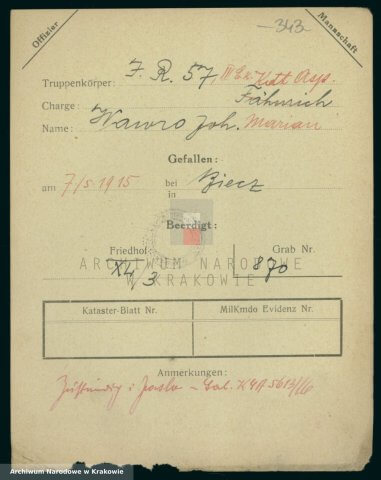 -343-
Offizier
Mannschaft
Truppenkörper: J. R. 57, III Ers. Asp.
Charge: Fähnrich
Name: Wawro Joh. Marian
Gefallen:
am 7/5 1915 bei in Biecz
Beerdigt:
Friedhof: Grab Nr.
XI/4 3 870
ARCHIWUM NARODOWE
W KRAKOWIE
Kataster-Blatt Nr. MilKmdo Evidenz Nr.
Anmerkungen:
Zuständig: Jasło -
Archiwum Narodowe w Krakowie